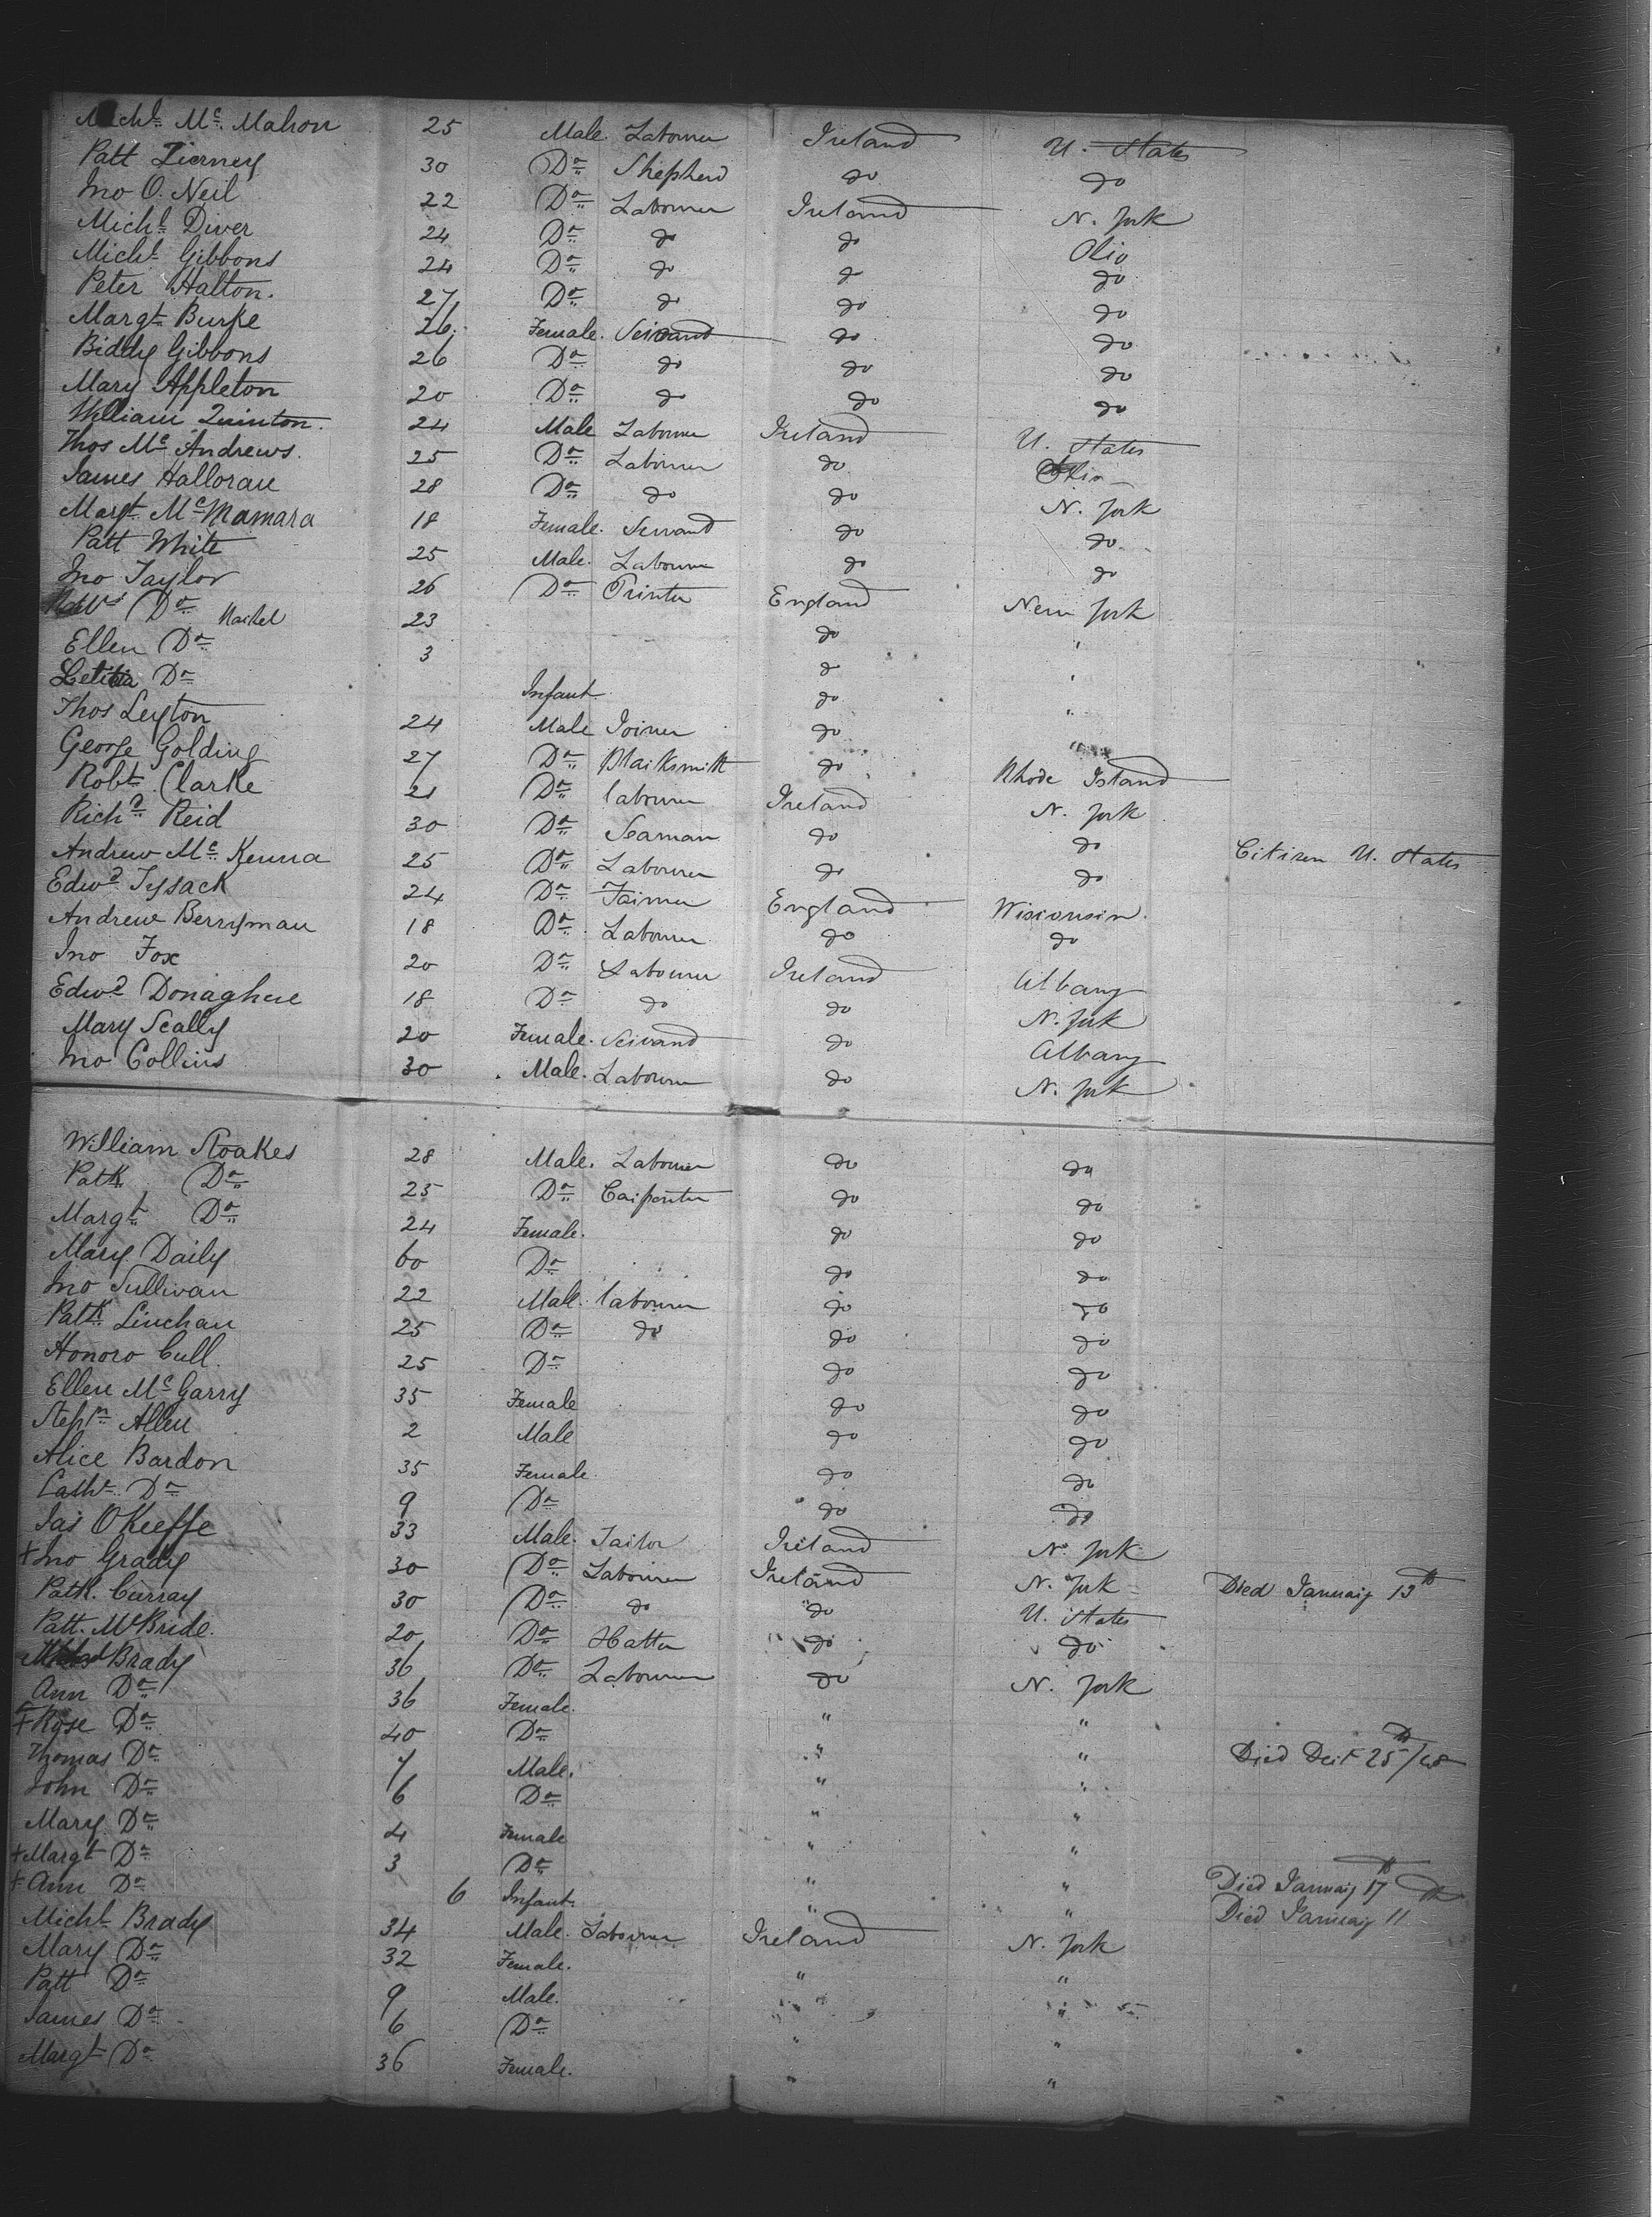 Michl. Mc. Mahon 25 Male. Labourer Ireland U. States
Patt Tierney 30 Do Shepherd do do
Jno O. Neil 22 Do Labourer Ireland N. York
Michl. Diver 24 Do do do Ohio
Michl. Gibbons 24 Do do do do
Peter Halton. 27 Do do do do
Margt. Burke 26. Female. Servant do do
Biddy Gibbons 26 Do do do do
Mary Appleton 20 Do do do do
William Quinton. 24 Male Labourer Ireland U. States
Thos Mc. Andrews. 25 Do Labourer do Ohio
James Halloran 28 Do do do N. York
Margt. McMamara 18 Female. Servant do do
Patt White 25 Male. Labourer do do
Jno Taylor 26 Do Printer England New York
Do Rachel 23 do "
Ellen Do 3 do "
Letitia Do Infant. do "
Thos Leyton 24 Male Joiner do "
George Golding 27 Do Blacksmith do Rhode Island
Robt. Clarke 21 Do labourer Ireland N. York
Richd. Reid 30 Do Seaman do do Citizen U. States
Andrew Mc. Kenna 25 Do Labourer do do
Edwd. Tysack 24 Do Farmer England Wisconsin.
Andrew Berryman 18 Do Labourer do do
Jno Fox 20 Do Labourer Ireland Albany
Edwd. Donaghue 18 Do do do N. York
Mary Scally 20 Female. Servant do Albany
Jno Collins 30 Male. Labourer do N. York
William Stoakes 28 Male. Labourer do do
Patk. Do 25 Do Carpenter do do
Margt. Do 24 Female. do do
Mary Daily 60 Do do do
Jno Sullivan 22 Male. labourer do do
Patk. Linehan 25 Do do do do
Honoro Cull. 25 Do do do
Ellen Mc. Garry 35 Female do do
Stephn. Allen 2 Male do do
Alice Bardon 35 Female. do do
Cathe. Do 9 Do do do
Jas OKeeffe 33 Male. Tailor Ireland N. York
+ Jno Grady 30 Do Labourer Ireland N. York Died January 13th
Patk. Curray 30 Do do do U. States
Patt. McBride. 20 Do Hatter do do
Brady 36 Do Labourer do N. York
Ann Do 36 Female. " "
+ Rose Do 40 Do " " Died Decr 25th/48
Thomas Do 7 Male. " "
John Do 6 Do " "
Mary Do 4 Female " "
+ Margt. Do 3 Do " " Died January 17th
+ Ann Do 6 Infant " " Died January 11th
Michl. Brady 34 Male. Labourer Ireland N. York
Mary Do 32 Female. " "
Patt Do 9 Male. " "
James Do 6 Do " "
Margt. Do 36 Female. " "